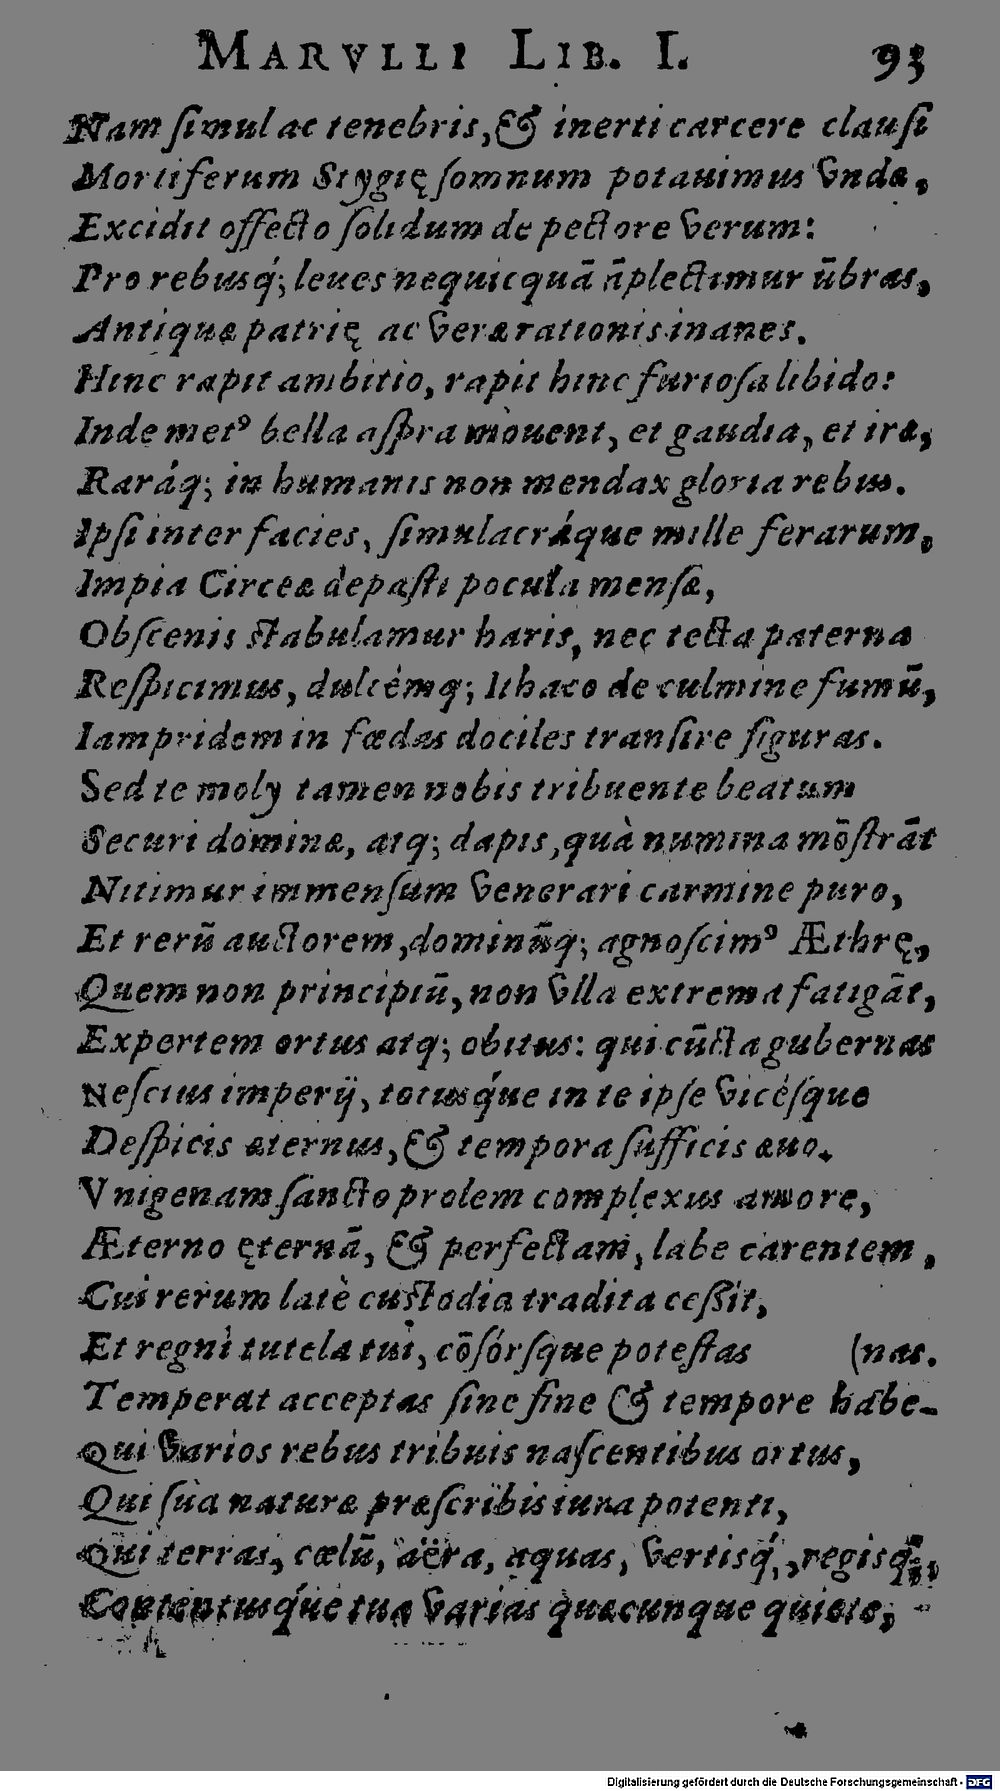 MARVLLI LIB. I. 93
Nam ſimul ac tenebris, & inerti carcere clauſi
Mortiferum Stygię ſomnum potauimus vndæ,
Excidit offecto ſolidum de pectore verum:
Pro rebusq́; leues nequicquā āplectimur ūbras,
Antiquæ patrię ac veræ rationis inanes.
Hinc rapit ambitio, rapit hinc furioſa libido:
Inde metꝰ bella aſpra mouent, et gaudia, et iræ,
Raráq; in humanis non mendax gloria rebus.
Ipſi inter facies, ſimulacráque mille ferarum,
Impia Circeæ depaſti pocula menſæ,
Obſcenis ſtabulamur haris, nec tecta paterna
Reſpicimus, dulcémq; Ithaco de culmine fumū,
Iampridem in fœdas dociles tranſire figuras.
Sed te moly tamen nobis tribuente beatum
Securi dominæ, atq; dapis, quà numina mōſtrāt
Nitimur immenſum venerari carmine puro,
Et rerū auctorem, dominūq; agnoſcimꝰ Æthrę,
Quem non principiū, non vlla extrema fatigāt,
Expertem ortus atq; obitus: qui cūcta gubernas
Neſcius imperij, totusq́ue in te ipſe vicéſque
Deſpicis æternus, & tempora ſufficis æuo.
Vnigenam ſancto prolem complexus amore,
Æterno ęternā, & perfectam, labe carentem,
Cui rerum latè cuſtodia tradita ceßit,
Et regni tutela tui, cōſórſque poteſtas (nas.
Temperat acceptas ſine fine & tempore habe-
Qui varios rebus tribuis naſcentibus ortus,
Qui ſua naturæ præſcribis iura potenti,
Qui terras, cœlū, aëra, aquas, vertisq́;, regisq́;,
Contentusq́ue tua varias quæcunque quiete,
Digitalisierung gefördert durch die Deutsche Forschungsgemeinschaft - DFG